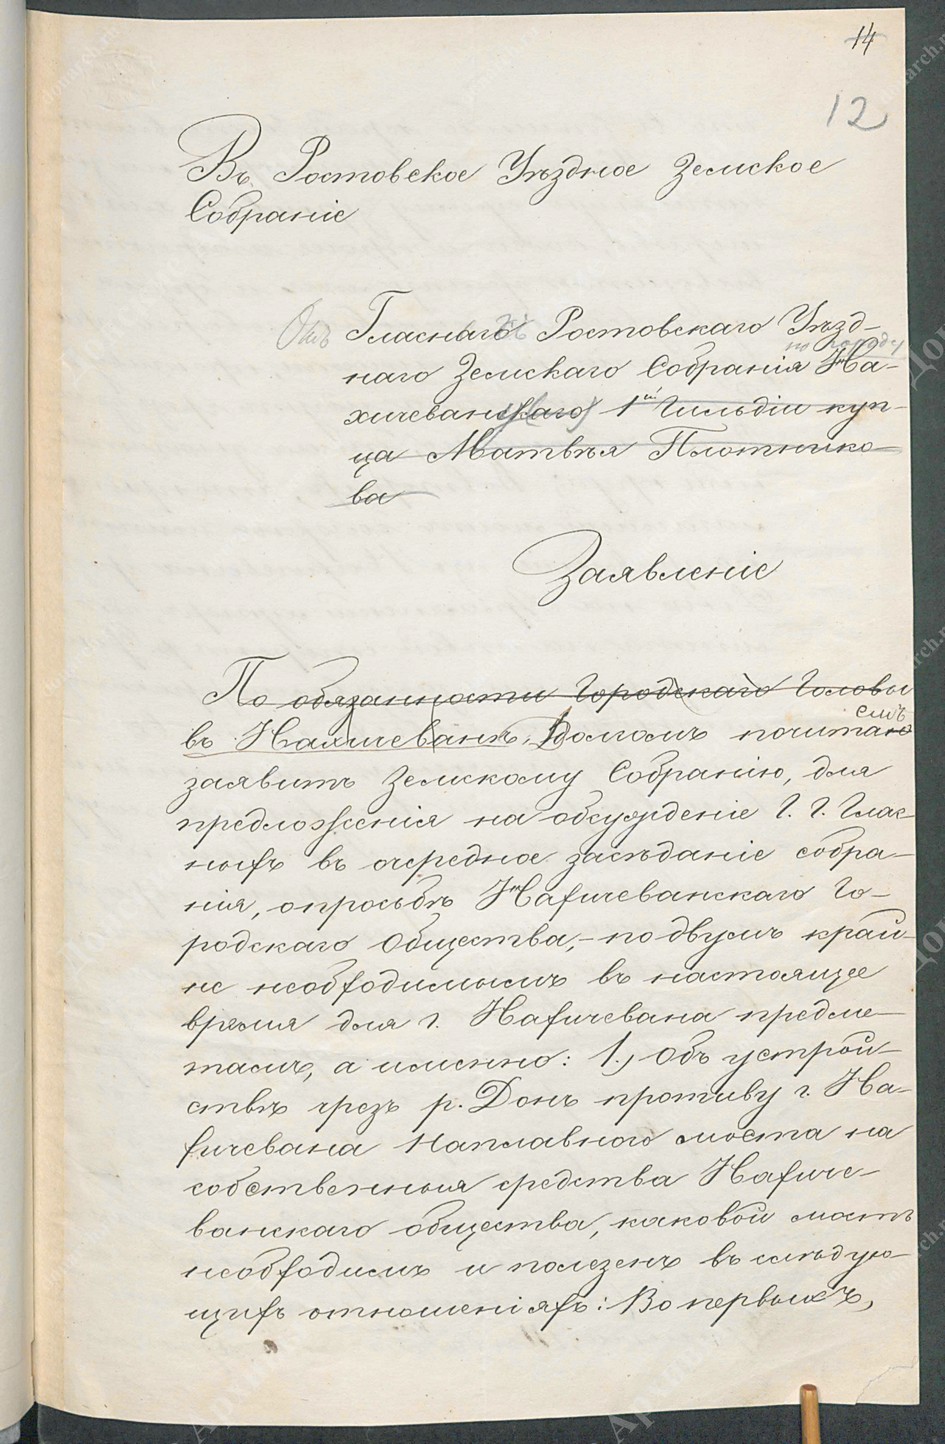 14
12
Въ Ростовское Уѣздное Земское
Собраніе
Гласнаго Ростовскаго Уѣзд-
наго Земскаго Собранія На-
хичеванскаго 1й Гильдіи куп-
ца Матвѣя Плотнико-
ва
Заявленіе
По обязанности Городскаго Головы
въ Нахичевани, Долгомъ почитаю
емъ
заявить Земскому Собранію, для
предложенія на обсужденіе Г. Г. Глас-
ныхъ въ очередное засѣданіе собра-
нія, опросьбѣ Нахичеванскаго Го-
родскаго Общества,- по двумъ край-
не необходимымъ въ настоящее
время для г. Нахичевана предме-
тамъ, а именно: 1., Объ устрой-
ствѣ чрезъ р. Донъ противу г. На-
хичевана наплавного моста на
собственныя средства Нахиче-
ванскаго общества, каковой мостъ
необходимъ и полезенъ въ слѣдую-
щихъ отношеніяхъ: Во первыхъ,